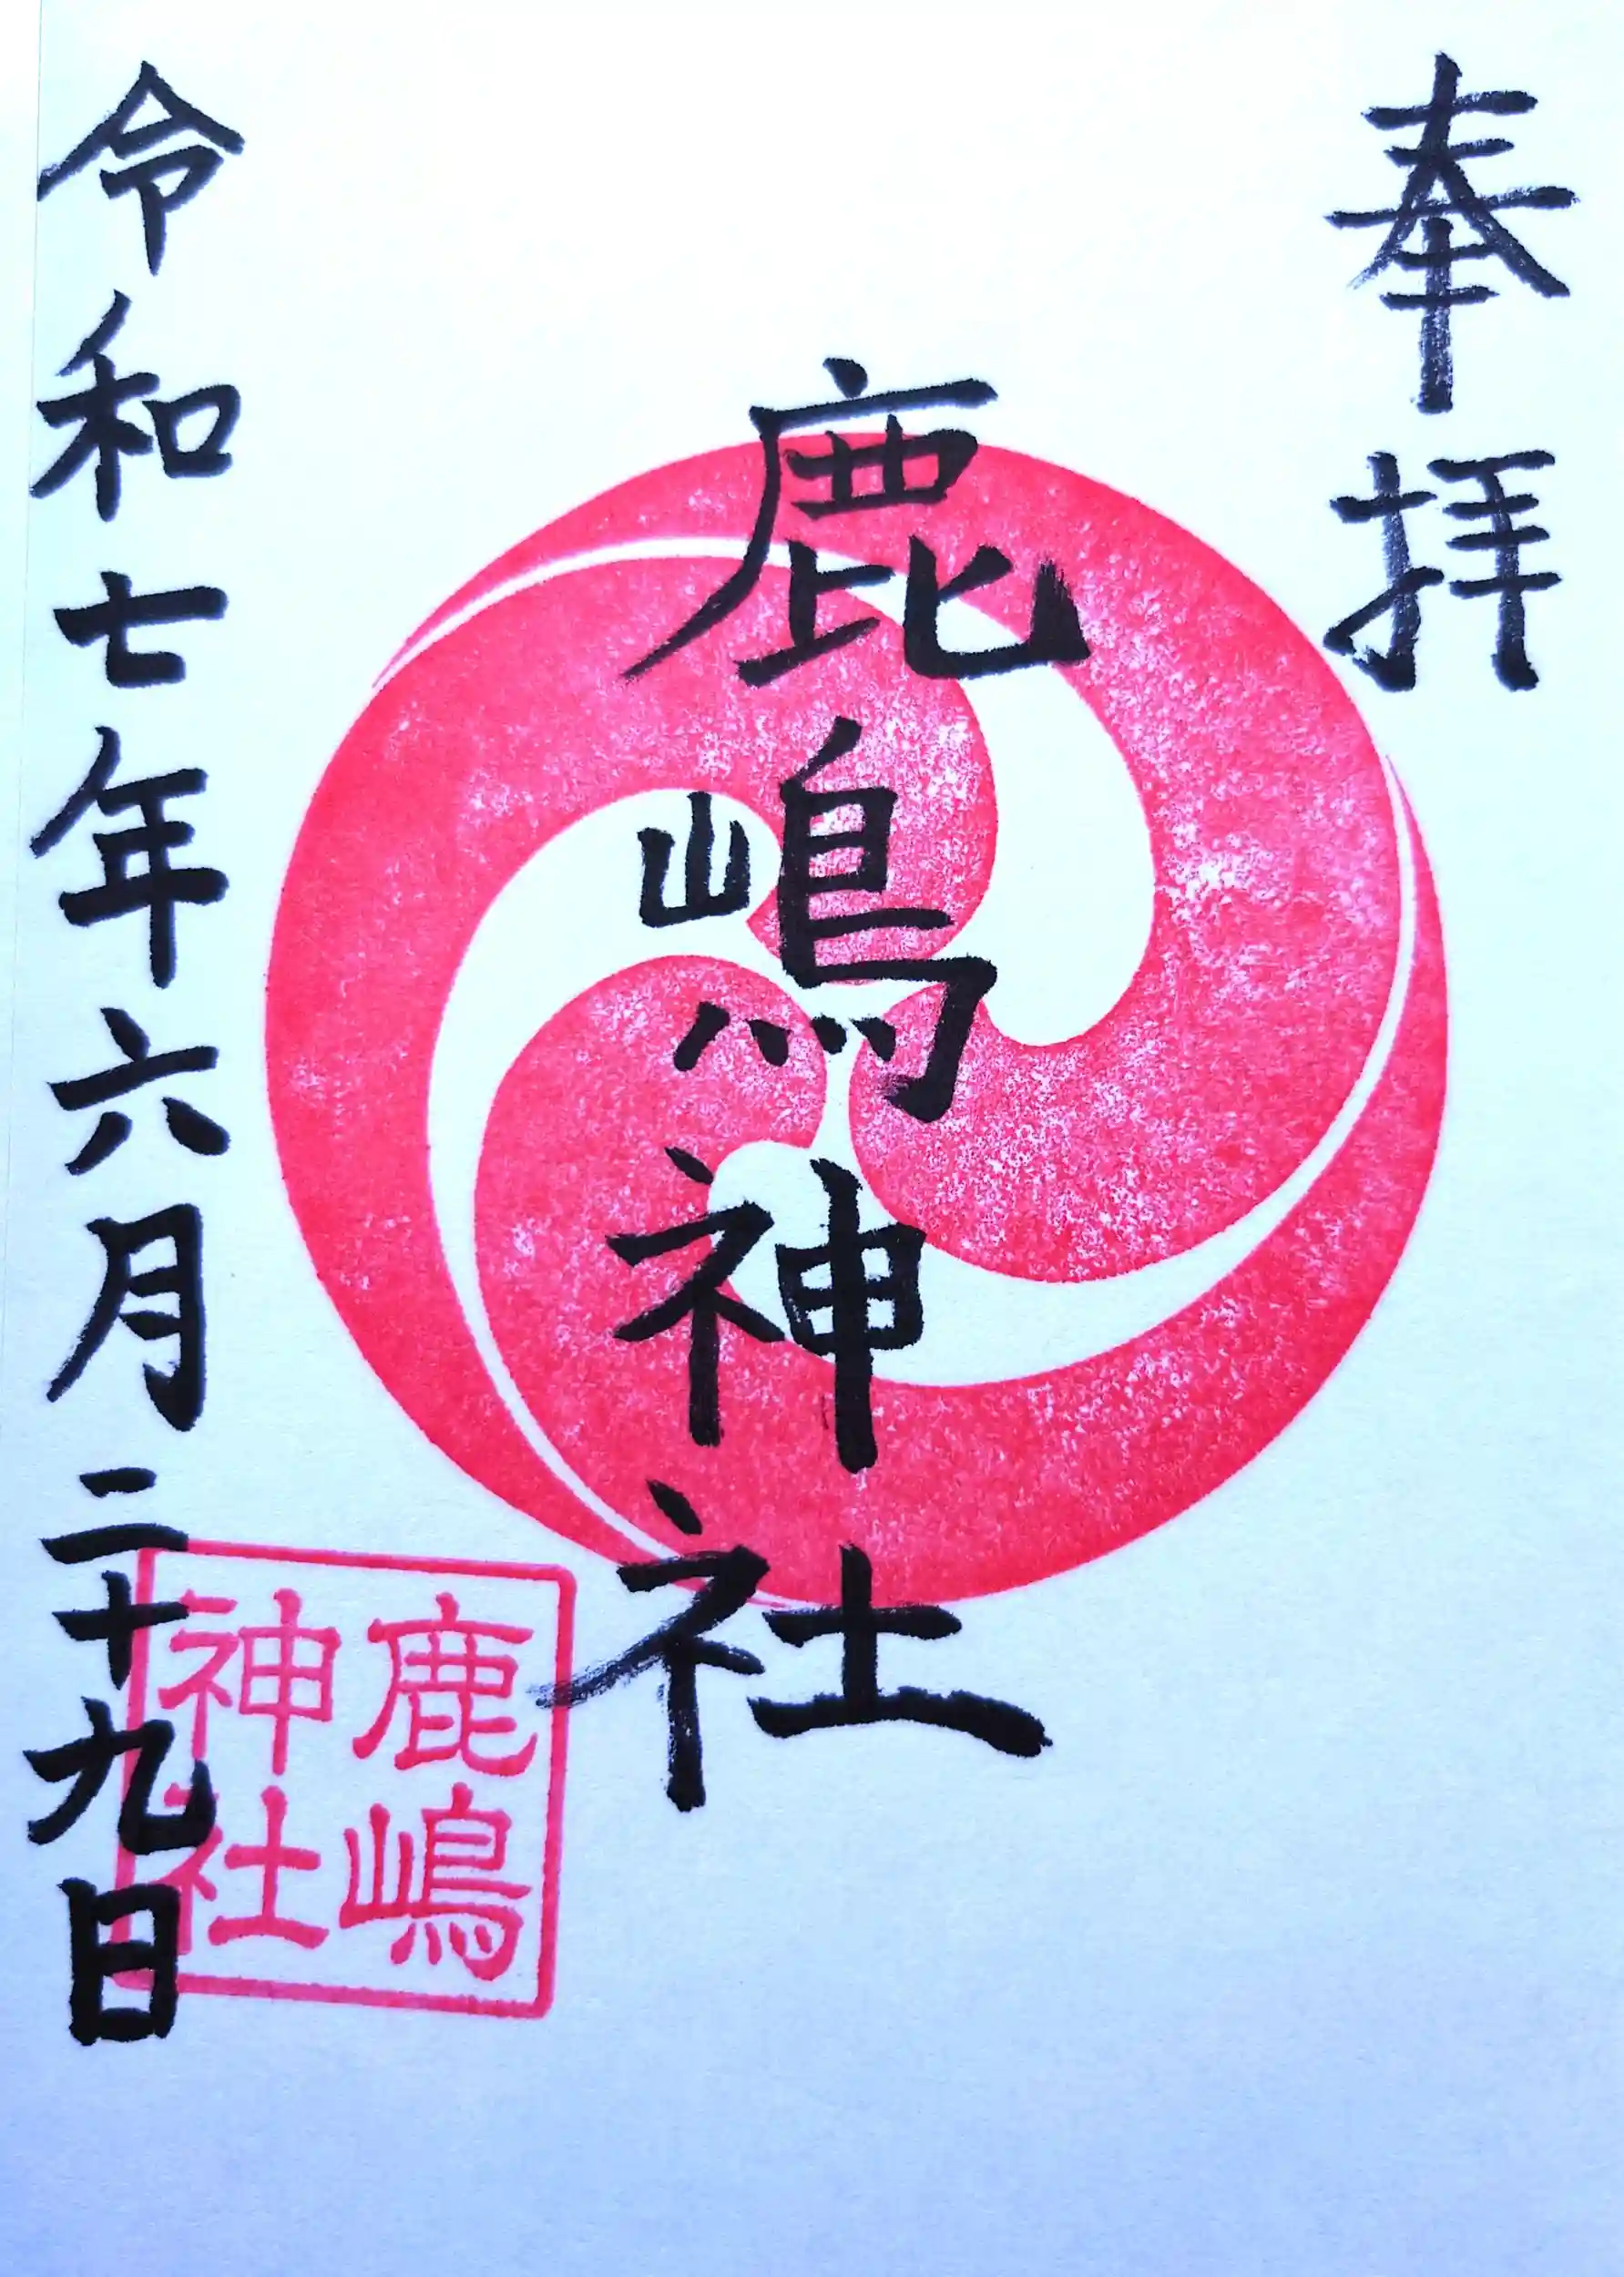 奉拝
鹿嶋神社
令和七年六月二十九日
鹿嶋
神社